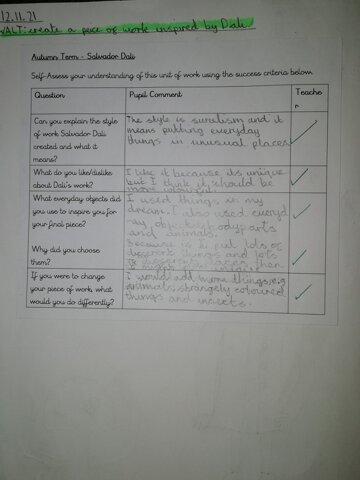 12.11.21
WALT: create a piece of work inspired by Dali.
Autumn Term - Salvador Dali
Self-Assess your understanding of this unit of work using the success criteria below.
Question Pupil Comment Teache
r
Can you explain the style
of work Salvador Dali
created and what it
means?
The style is surealism and it
means putting everyday
things in unusual places
What do you like/dislike
about Dali's work?
I like it because its unique
but I think it should be
more colourful.
What everyday objects did
you use to inspire you for
your final piece?
I used things in my
dream. I also used everyd
-ay objects, body parts
and animals.
Why did you choose
them?
because if I put lots of
things and lots
of places then
it might be unique
If you were to change
your piece of work, what
would you do differently?
I would add more things e.g
animals, strangely coloured
things and insects.